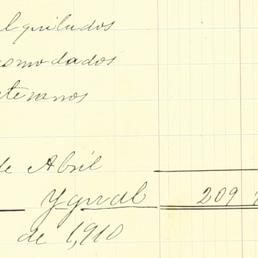 lquilados
smodados
terranos
de Abril
Ygual 209
de 1,910